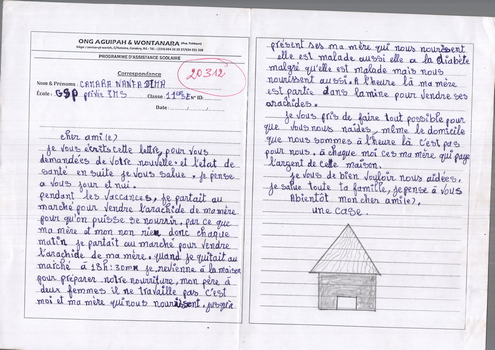 ONG AGUIPAH & WONTANARA
PROGRAMME D'ASSISTANCE SCOLAIRE
Correspondance
2031²
Nom & Prénoms : CAMARA NANFA
École : GSP privée IMS Classe 11ème N° ID:
Date :
cher ami(e)
je vous écrits cette lettre, pour vous
demandées de votre nouvelle. et l'état de
santé en suite je vous salue. je pense
a vous jour et nui.
pendant les vaccances, je partait au
marché pour vendre l'arachide de ma mère
pour qu'on puisse se nourrir. par ce que
ma mère et mon non rien donc chaque
matin je partait au marché pour vendre
l'arachide de ma mère. quand je quitait au
marché à 18h:30mn je revienne à la maison
pour préparer notre nourriture, mon père à
deux femmes il ne travaille pas c'est
moi et ma mère qui nous nourrissent. jusqu'à
présent ses ma mère qui nous nourissent
elle est malade aussi elle a la diabète
malgré qu'elle est malade mais nous
nourissent aussi. A l'heure là ma mère
est partie dans la mine pour vendre ses
arachides.
je vous pris de faire tout possible pour
que vous nous naidés, même le domicile
que nous sommes à l'heure là c'est pas
pour nous. à chaque moi ces ma mère qui paye
l'argent de celle maison.
je vous de bien vouloir nous aidées.
je salue toute ta famille, je pense à vous
Abientôt mon cher ami(e),
une case.